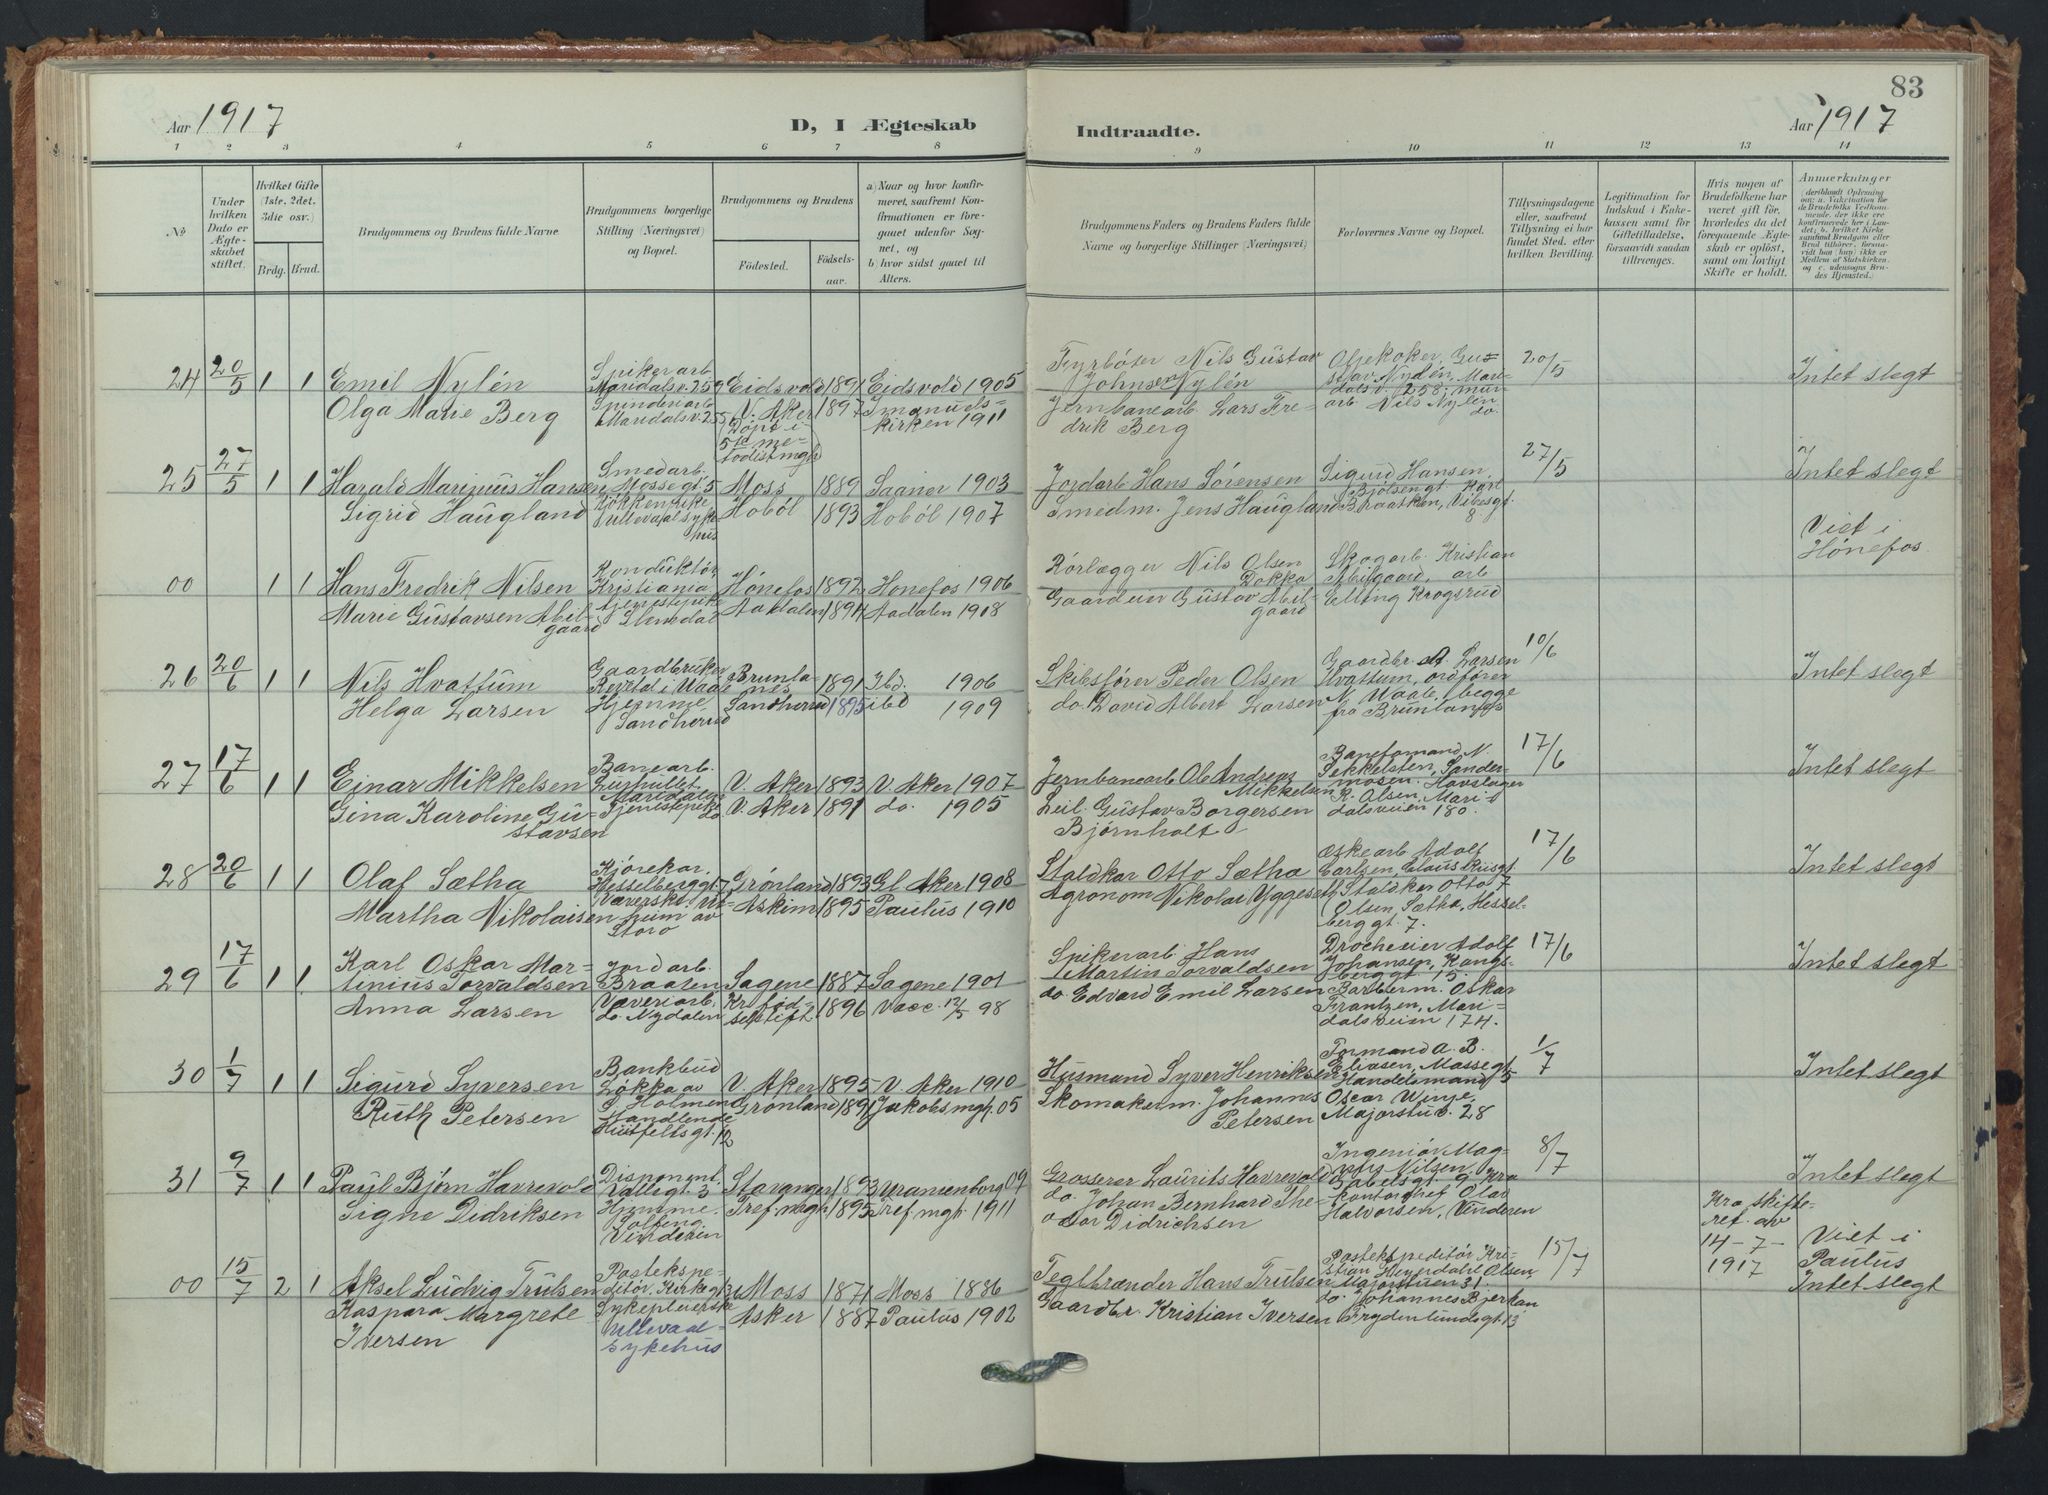 83
Aar 1917
D, I Ægteskab
Indtraadte.
Aar 1917
1 2 3 4 5 6 7 8 9 10 11 12 13 14
№
Under hvilken Dato er Ægteskabet stiftet.
Hvilket Gifte (1ste, 2det, 3die osv.)
Brdg. Brud.
Brudgommens og Brudens fulde Navne
Brudgommens borgerlige Stilling (Næringsvei) og Bopæl.
Brudgommens og Brudens
Fødested.
Fødsels-aar.
a) Naar og hvor konfirmeret, saafremt Konfirmationen er foregaaet udenfor Sognet, og
b) hvor sidst gaaet til Alters.
Brudgommens Faders og Brudens Faders fulde Navne og borgerlige Stillinger (Næringsvei)
Forlovernes Navne og Bopæl.
Tillysningsdagene eller, saafremt Tillysning ei har fundet Sted, efter hvilken Bevilling.
Legitimation for Indskud i Enkekassen samt for Giftetilladelse, forsaavidt saadan tiltrænges.
Hvis nogen af Brudefolkene har været gift før, hvorledes da det foregaaende Ægteskab er opløst, samt om lovligt Skifte er holdt.
Anmerkninger
24 20/5 1 1 Emil Nylén
Spikerarb. Maridalsv. 259
Eidsvold 1891 Eidsvold 1905
Fyrbøter Nils Gustav Johnsen Nylén
Oljekoker Gustav Nydén, Maridalsv. 258, murarb Nils Nylén do.
20/5
Intet slegt
Olga Marie Berg
Spinderiarb Maridalsv. 255
V. Aker (Døpt i 5te metodistmgh) 1897 Imanuels-kirken 1911
Jernbanearb. Lars Fredrik Berg
25 27/5 1 1 Harald Marinius Hansen
Smedarb. Mossegt 5
Moss 1889 Saaner 1903
Jordarb Hans Sørensen
Sigurd Hansen, Bjølsengt. Karl Braatken, Vibesgt. 8.
27/5
Intet slegt
Sigrid Haugland
Kjøkkenpike Ullevaal sykehus
Hobøl 1893 Hobøl 1907
Smedm. Jens Haugland
00 1 1 Hans Fredrik Nilsen
Konduktør, Kristiania
Hønefos 1892 Hønefos 1906
Rørlægger Nils Olsen Dokka
Skogarb. Kristian Abilgaard, arb Elling Krogsrud
Viet i Hønefos
Marie Gustavsen Abilgaard
Tjenestepike
Aadalen 1891 Aadalen 1908
Gaardeier Gustav Abilgaard
26 20/6 1 1 Nils Hvattum
Gaardbruker
Brunlanes 1891 Ibd. 1906
Skibsfører Peder Olsen
Gaardbr. A. Larsen Hvattum, ordfører N. Vaale, begge fra Brunlanes
10/6
Intet slegt
Helga Larsen
Hjemme, Sandherred
Sandherred 1895 ibd 1909
do. David Albert Larsen
27 17/6 1 1 Einar Mikkelsen
Banearb. Maridalen
V. Aker 1893 V. Aker 1907
Jernbanearb Ole Andreas Mikkelsen
Baneformand N. Pekkelsten, Sandermosen. Høvslager R. Olsen, Maridalsveien 180.
17/6
Intet slegt
Gina Karoline Gustavsen
Tjenestepike do
V. Aker 1891 do. 1905
Leil. Gustav Borgersen Bjørnholt
28 20/6 1 1 Olaf Sætha
Kjørekar. Hesselberggt 7
Grønland 1893 Gl. Aker 1908
Staldkar Otto Sætha
Eskearb Adolf Carlsen, Claus Riisgt. 7 Staldkar Otto Olsen Sætha, Hesselberggt. 7.
17/6
Intet slegt
Martha Nikolaisen
Væverske
Askim 1895 Paulus 1910
Agronom Nikolai Yggeseth
29 17/6 1 1 Karl Oskar Martinius Torvaldsen
Jordarb. Braaten
Sagene 1887 Sagene 1901
Spikerarb. Hans Martin Torvaldsen
Droscheeier Adolf Johansen, Kongsberggt 15. Barberm. Oskar Frantzen, Maridalsveien 174.
17/6
Intet slegt
Anna Larsen
Væveriarb. do. Nydalen
Kr. fødselsstift. 1896 Vacc. 12/5 98
do. Edvard Emil Larsen
30 1/7 1 1 Sigurd Syversen
Bankbud Løkka av Holmen
V. Aker 1895 V. Aker 1910
Husmand Syver Henriksen
Formand A. B. Eliasen, Mossegt 5 Handelsmand Oscar Winje, Majorstuv. 28
1/7
Intet slegt
Ruth Petersen
Handlende Huitfeltsgt. 12
Grønland 1891 Jakobs mgh. 05
Skomakerm. Johannes Petersen
31 9/7 1 1 Paul Bjørn Havrevold
Disponent. Valligt. 3
Stavanger 1893 Uranienborg 09
Grosserer Laurits Havrevold
Ingeniør Magnus Nilsen, Gabelsgt. 9, Kra kontorchef Olav Halvorsen, Vinderen
8/7
Intet slegt
Signe Didriksen
Hjemme. Solfeng. Vinderen
Tref. mgh 1895 Tref. mgh. 1911
do. Johan Bernhard Theodor Didrichsen
00 15/7 2 1 Aksel Ludvig Trulsen
Postekspeditør, Kirkegt
Moss 1871 Moss 1886
Teglbrænder Hans Trulsen
Postekspeditør Kristian Heyerdahl Olsen, Majorstuen 31. do. Johannes Bjerkan Frydenlundsgt 13
15/7
Kra skifteret. av 14-7-1917
Viet i Paulus
Intet slegt
Kaspara Margrete Iversen
Sykepleierske Ullevaal sykehus
Asker 1887 Paulus 1902
Gaardbr. Kristian Iversen